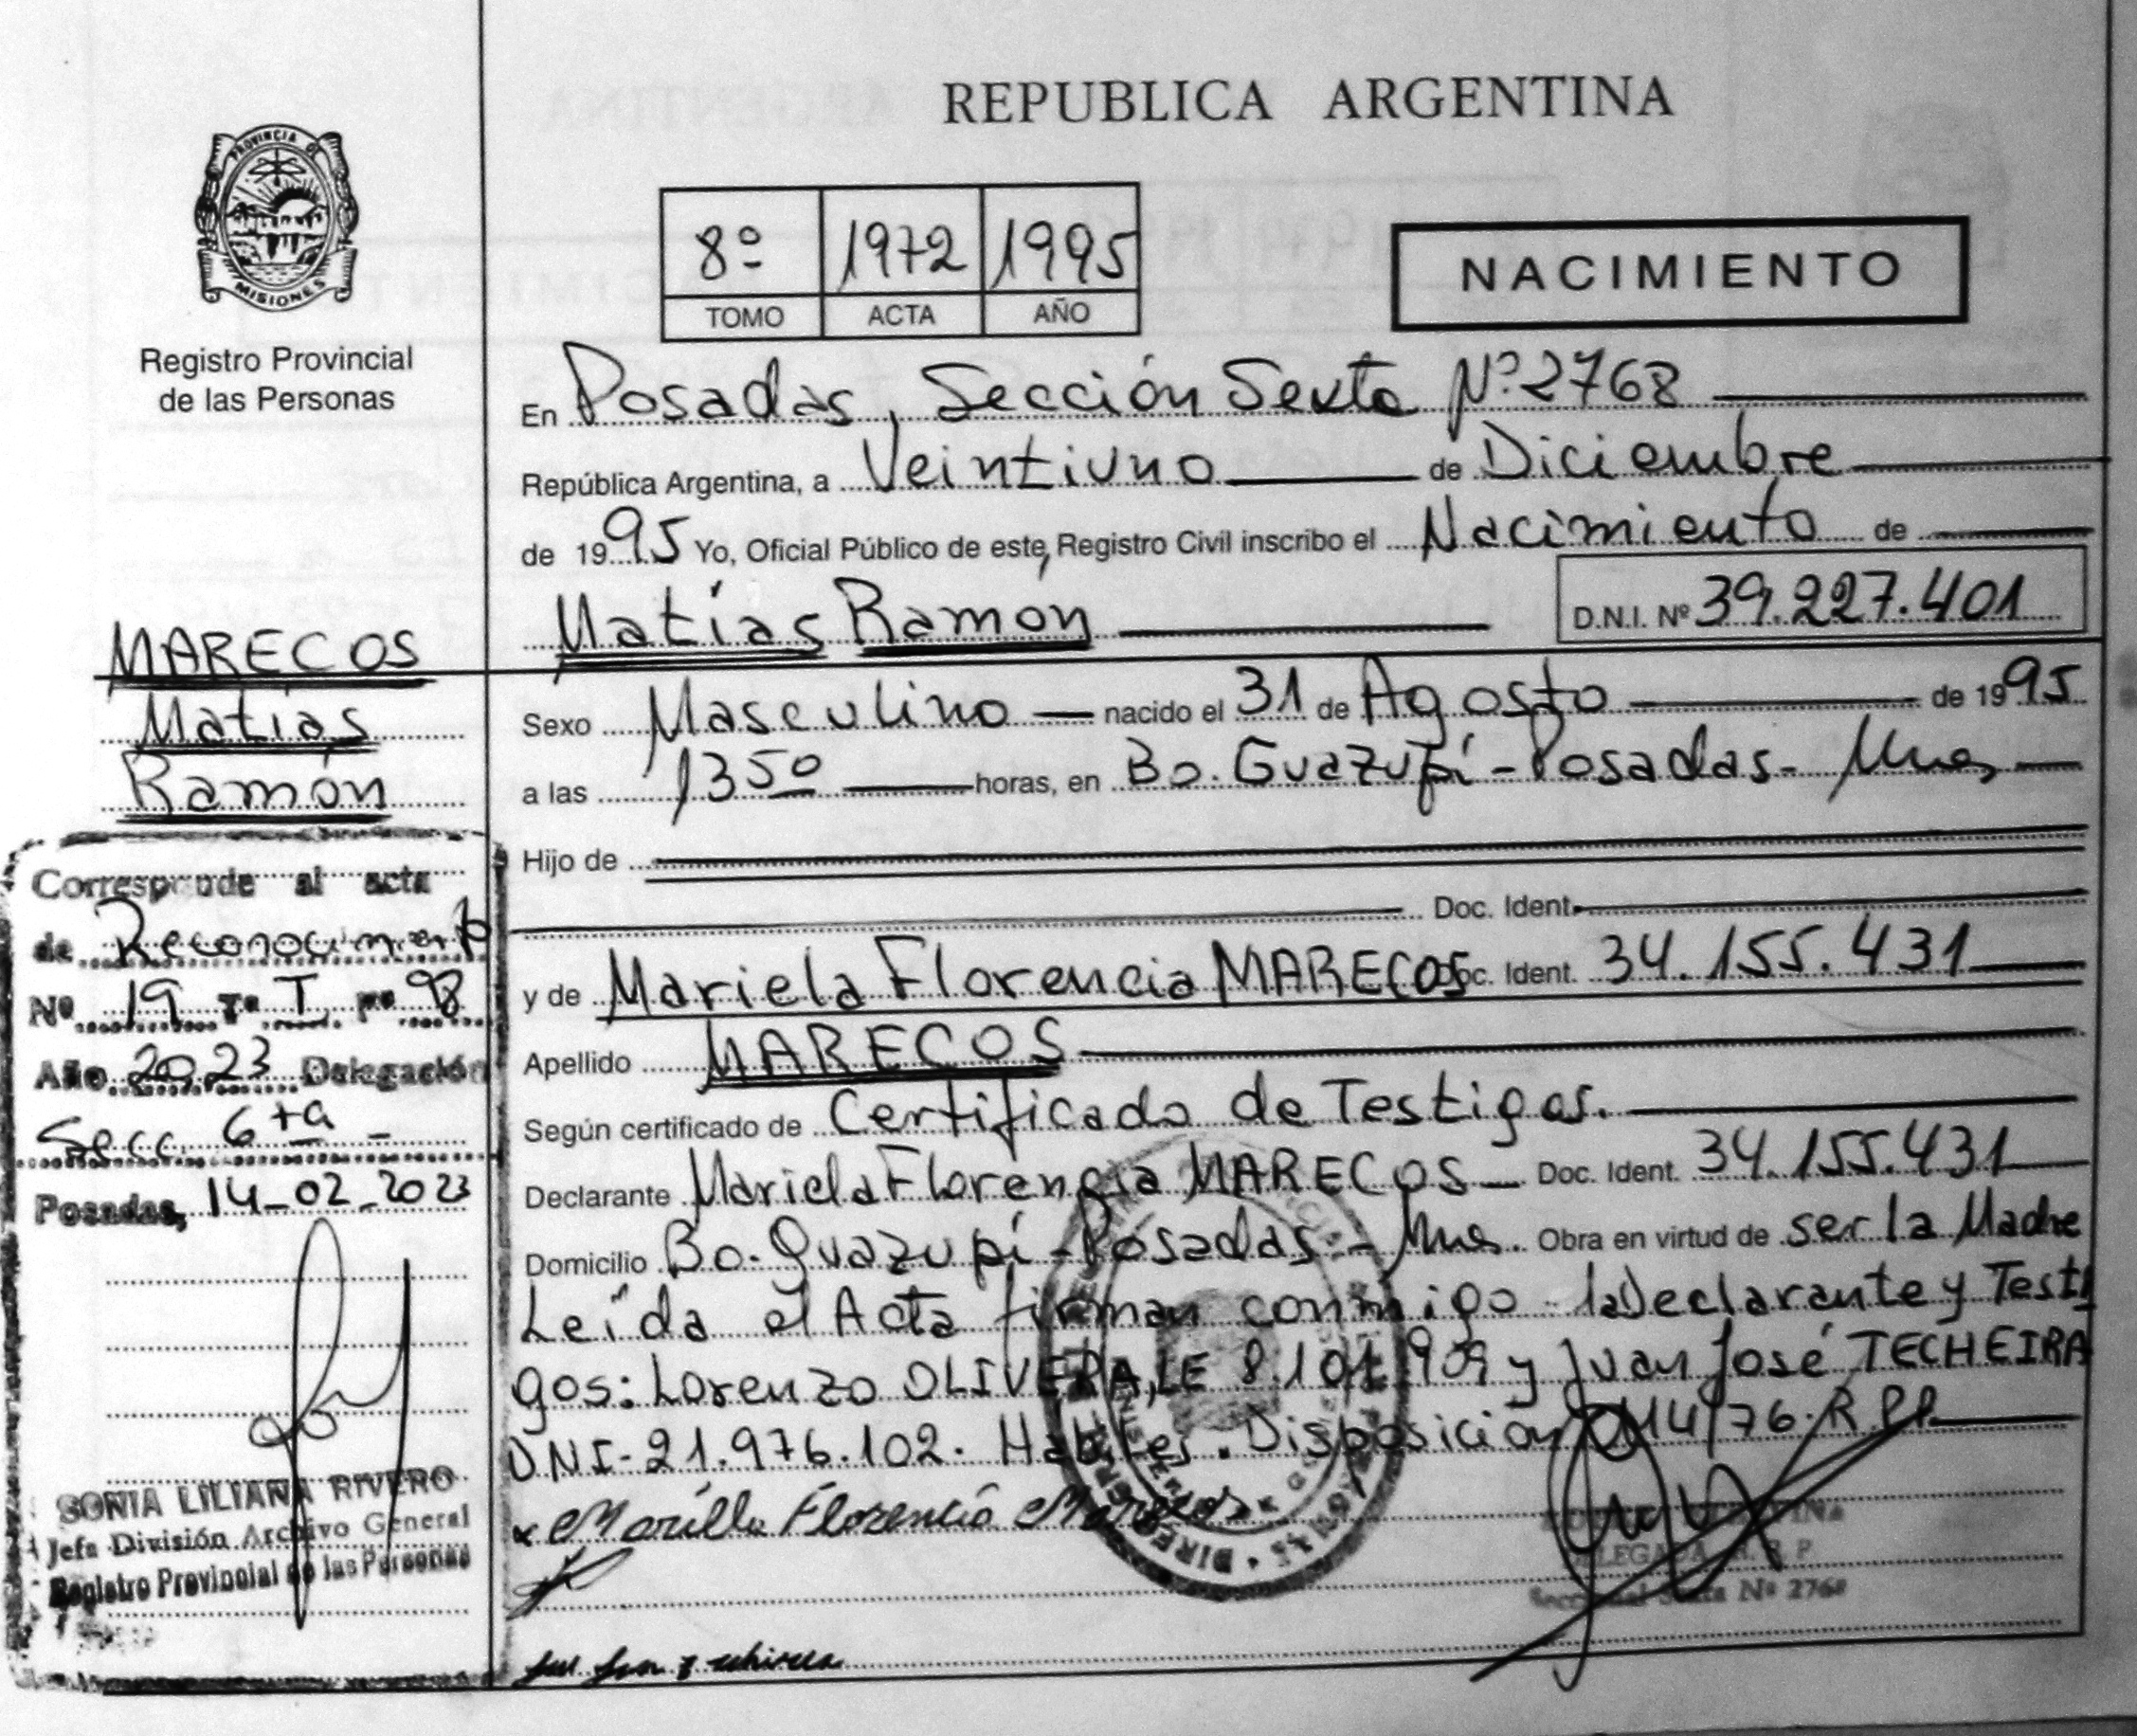 REPUBLICA ARGENTINA
PROVINCIA DE
MISIONES
Registro Provincial
de las Personas
8º 1972 1995
TOMO ACTA AÑO
NACIMIENTO
En Posadas, Sección Sexta Nº 2768
República Argentina, a Veintiuno de Diciembre
de 1995 Yo, Oficial Público de este, Registro Civil inscribo el Nacimiento de
Matías Ramón D.N.I. Nº 39.227.401
MARECOS
Matías
Ramón
Sexo Masculino nacido el 31 de Agosto de 1995
a las 13 50 horas, en Bo. Guazupí - Posadas - Mnes
Hijo de
Doc. Ident.
y de Mariela Florencia MARECOS Doc. Ident. 34.155.431
Apellido MARECOS
Según certificado de Certificado de Testigos.
Declarante Mariela Florencia MARECOS Doc. Ident. 34.155.431
Domicilio Bo. Guazupí - Posadas - Mnes. Obra en virtud de ser la Madre
Leída el Acta firman conmigo la Declarante y Testi
gos: Lorenzo OLIVERA, LE 8.101.909 y Juan José TECHEIRA
DNI-21.976.102. Hábiles. Disposición 114/76. R.P.P.
Corresponde al acta
de Reconocimiento
Nº 19 Tº I Fº 98
Año 2023 Delegación
Secc 6ta -
Posadas, 14-02-2023
SONIA LILIANA RIVERO
Jefa División Archivo General
Registro Provincial de las Personas
DELEGADA R. P. P.
Seccional Sexta Nº 2768